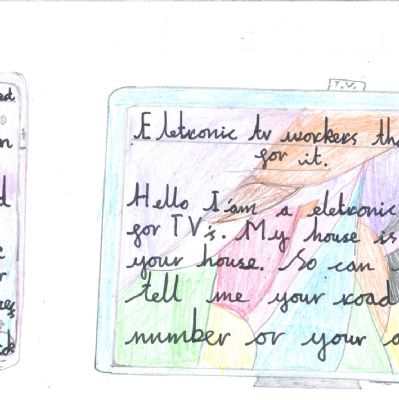 T.V.
Eletronic tv workers
for it.
Hello I'am a eletronic
for TV's. My house is
your house. So can
tell me your road
number or your